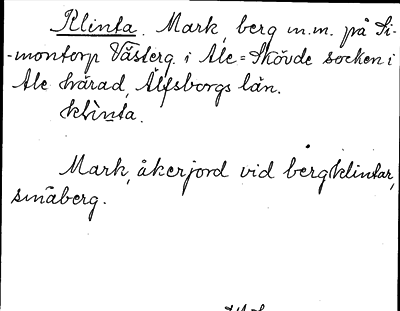 Klinta. Mark, berg m.m. på Si-
-montorp Västerg. i Ale-Skövde socken i
Ale härad, Älfsborgs län.
klinta.
Mark, åkerjord vid bergklintar,
småberg.